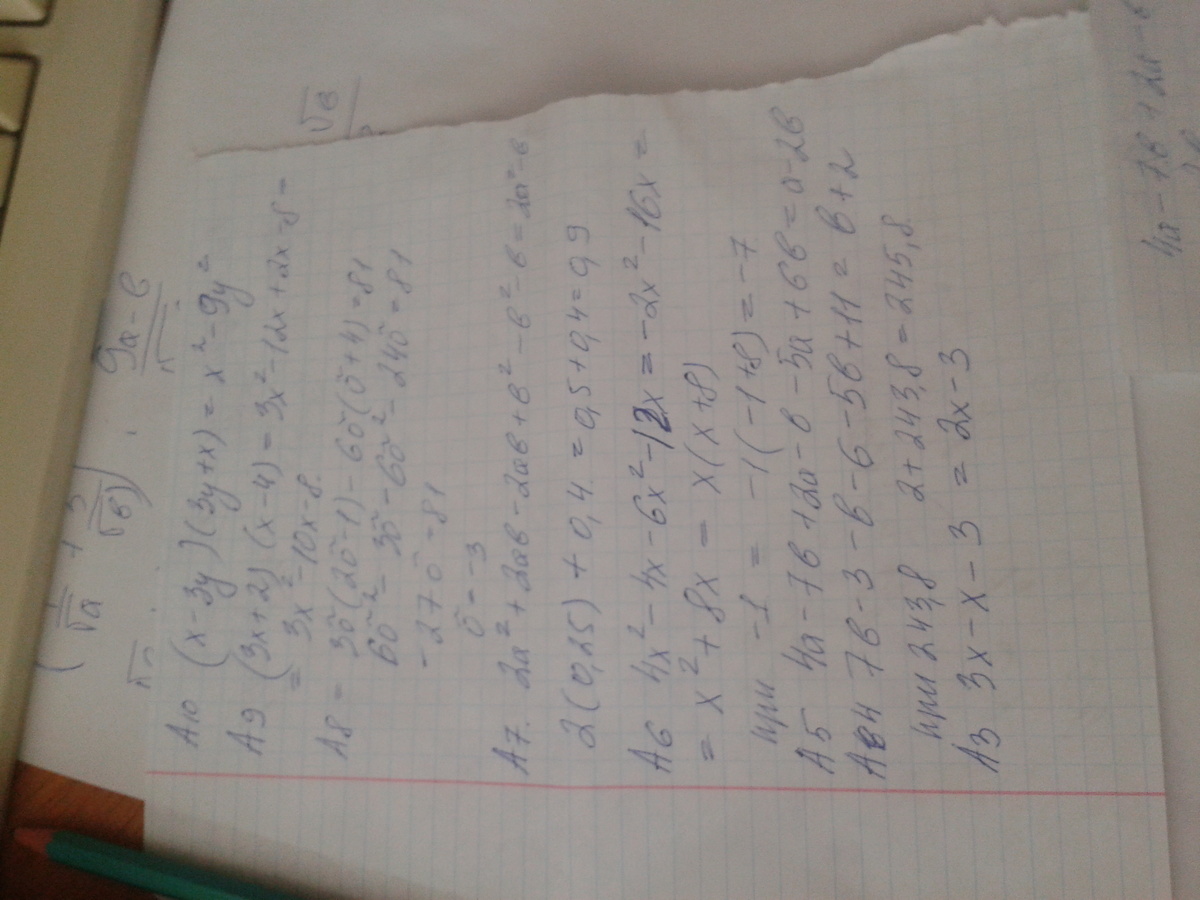 A10 (x-3y)(3y+x) = x² - 9y²
A9 (3x+2)(x-4) = 3x² - 12x + 2x - 8 =
= 3x² - 10x - 8.
A8 = 3б(2б-1) - 6б(б+4) = 81
6б² - 3б - 6б² - 24б = 81
-27б = 81
б = -3
A7. 2a² + 2ab - 2ab + b² - b² - b = 2a² - b
2(0,25) + 0,4 = 0,5 + 0,4 = 0,9
A6 4x² - 4x - 6x² - 12x = -2x² - 16x =
= x² + 8x = x(x+8)
при -1 = -1(-1+8) = -7
A5 4a - 7b + 2a - b - 5a + 6b = a - 2b
A4 7b - 3 - b - 6 - 5b + 11 = b + 2
при 243,8 2 + 243,8 = 245,8
A3 3x - x - 3 = 2x - 3
9a - b
√b
4a - 7b + 2a - b